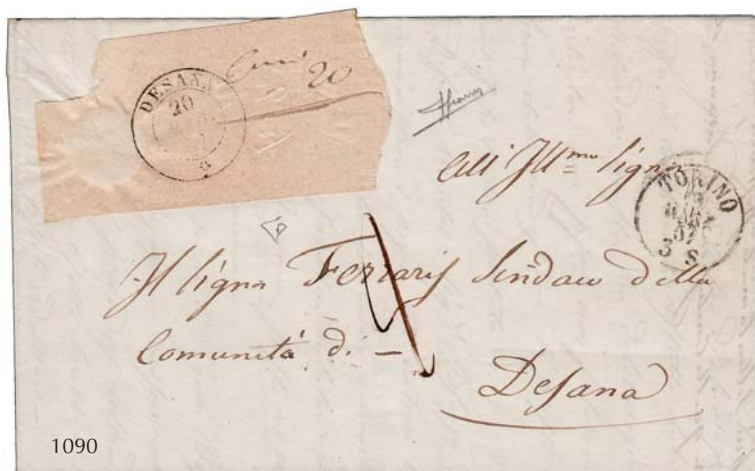 DESANA
20
20
All' Ill.mo Sign.
TORINO
57
3 S
Il Sign. Ferraris Sindaco della
Comunità di –
Desana
1090